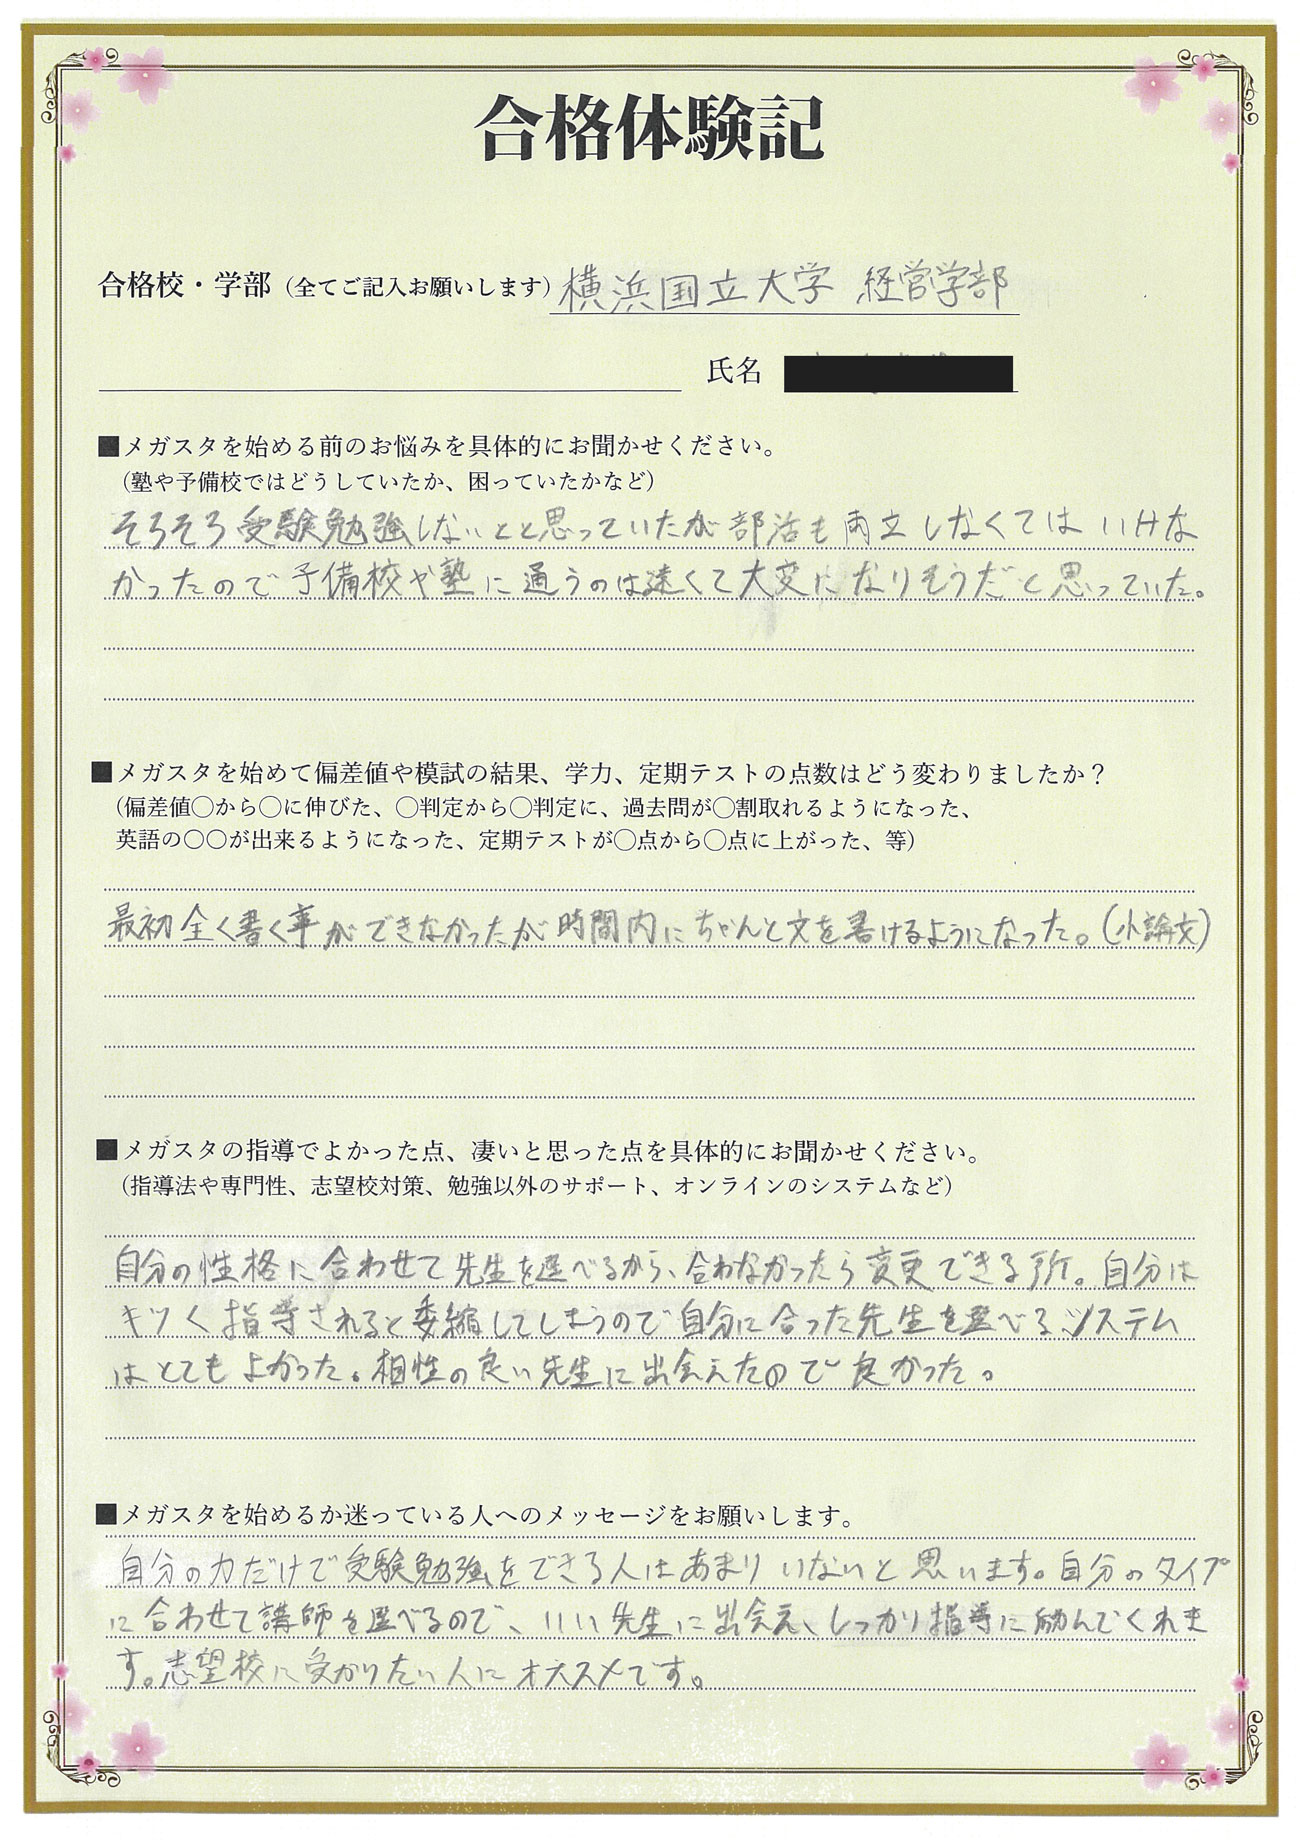 合格体験記
合格校・学部（全てご記入お願いします）横浜国立大学 経営学部
氏名
■メガスタを始める前のお悩みを具体的にお聞かせください。
（塾や予備校ではどうしていたか、困っていたかなど）
そろそろ受験勉強しないとと思っていたが部活も両立しなくてはいけな
かったので予備校や塾に通うのは遠くて大変になりそうだと思っていた。
■メガスタを始めて偏差値や模試の結果、学力、定期テストの点数はどう変わりましたか？
（偏差値〇から〇に伸びた、〇判定から〇判定に、過去問が〇割取れるようになった、
英語の〇〇が出来るようになった、定期テストが〇点から〇点に上がった、等）
最初全く書く事ができなかったが時間内にちゃんと文を書けるようになった。（小論文）
■メガスタの指導でよかった点、凄いと思った点を具体的にお聞かせください。
（指導法や専門性、志望校対策、勉強以外のサポート、オンラインのシステムなど）
自分の性格に合わせて先生を選べるから、合わなかったら変更できる所。自分は
キツく指導されると委縮してしまうので自分に合った先生を選べるシステム
はとてもよかった。相性の良い先生に出会えたので良かった。
■メガスタを始めるか迷っている人へのメッセージをお願いします。
自分の力だけで受験勉強をできる人はあまりいないと思います。自分のタイプ
に合わせて講師を選べるので、いい先生に出会え、しっかり指導に励んでくれま
す。志望校に受かりたい人にオススメです。